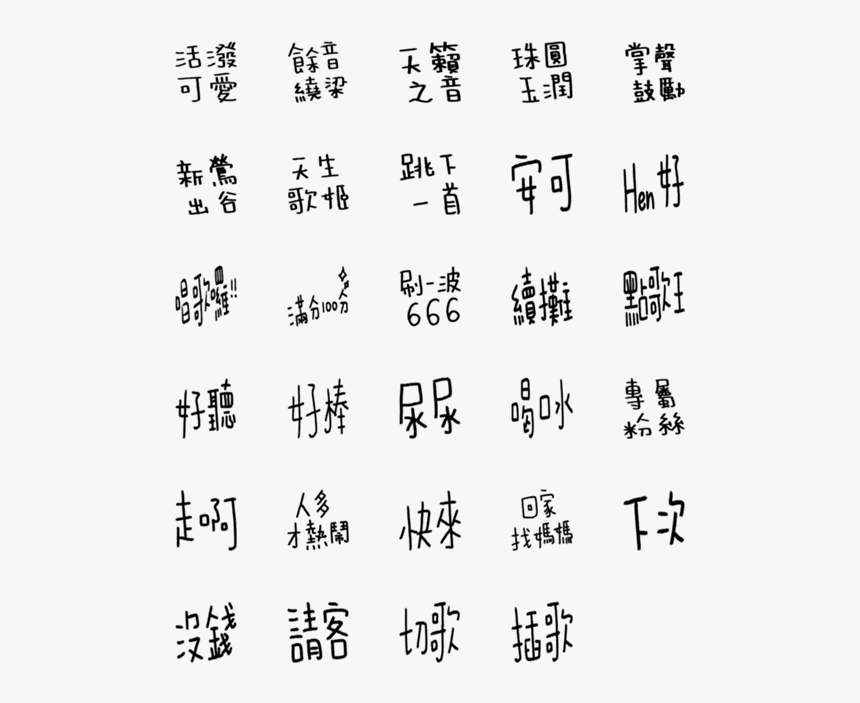 活潑
可愛
餘音
繞梁
天籟
之音
珠圓
玉潤
掌聲
鼓勵
新鶯
出谷
天生
歌姬
跳下
一首
安可
Hen好
唱歌囉!!
滿分100分
刷一波
666
續攤
點歌王
好聽
好棒
尿尿
喝水
專屬
粉絲
走啊
人多
才熱鬧
快來
回家
找媽媽
下次
沒錢
請客
切歌
插歌